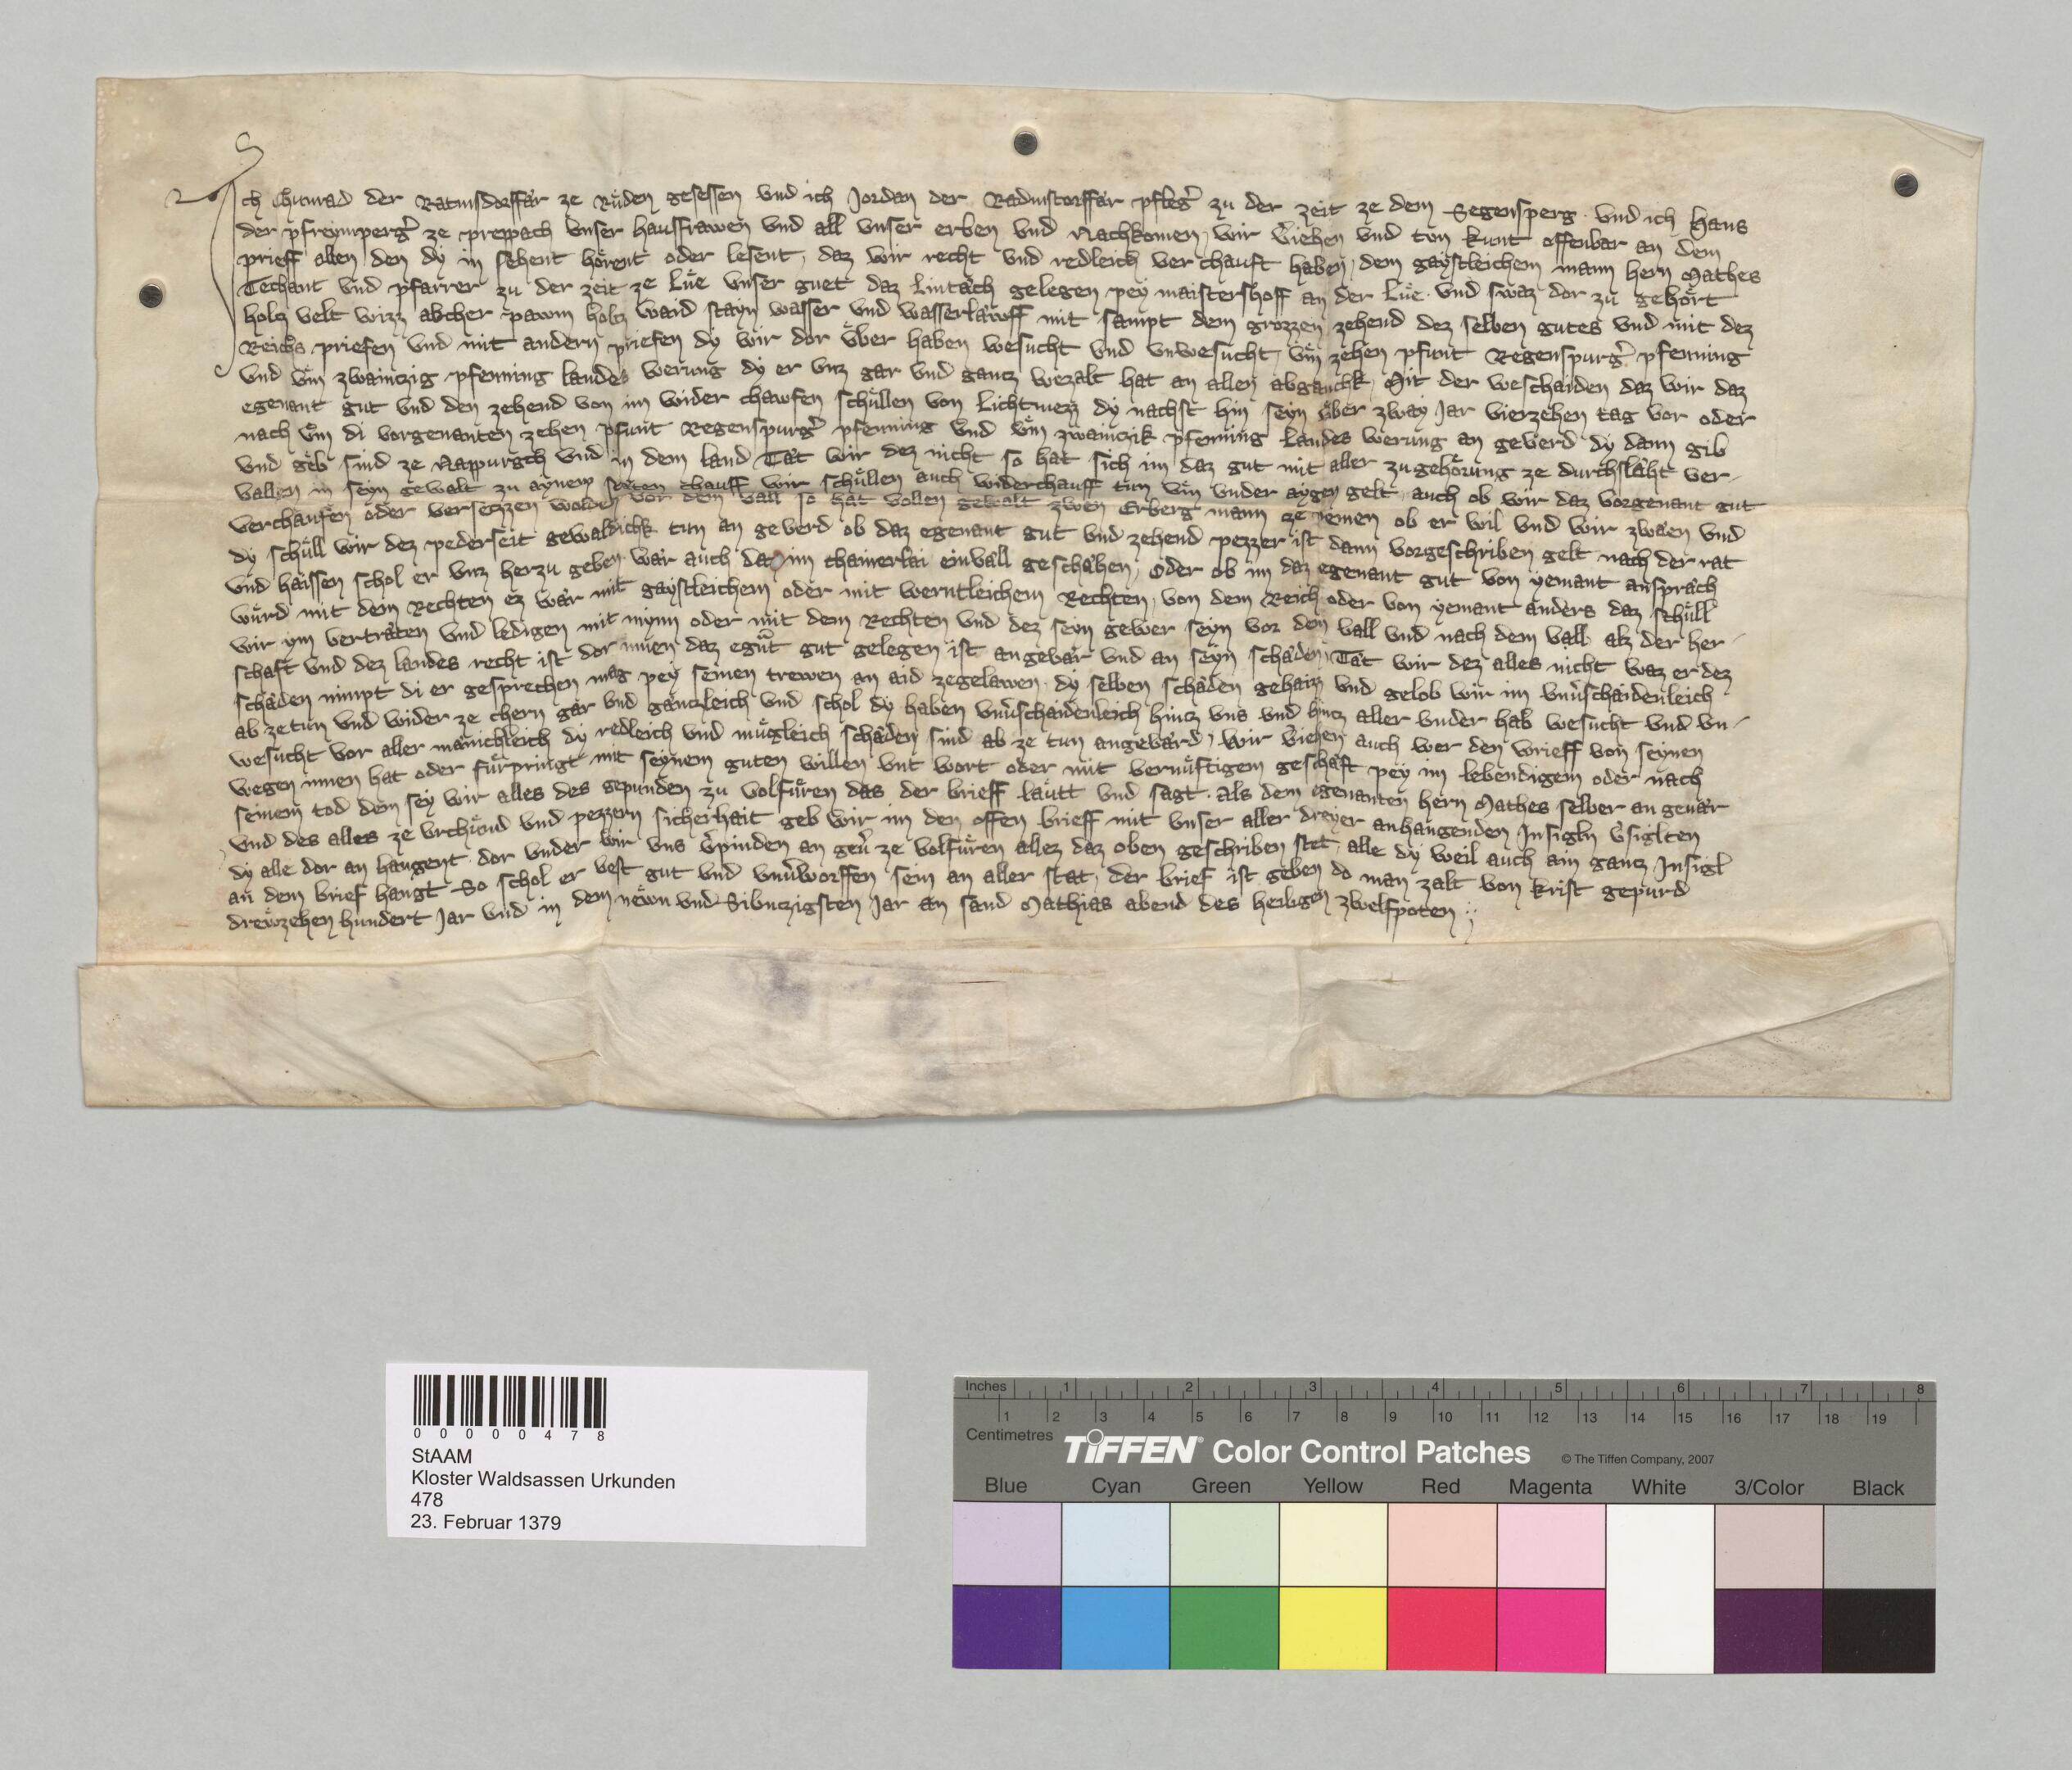 Ich Chunrad der Ratmsdorffär ze Rüden gesessen vnd ich Jordan der Radmstorffär pfleger zu der zeit ze dem Segensperg vnd ich Hans
der pfreymperger ze preppach vnser hausfrawen vnd all vnser erben vnd Nachkomen, wir veriehen vnd tun kunt offenbar an dem
prieff allen den dy in sehent hörent oder lesent, daz wir recht vnd redleich verchauft haben, dem gaystleichem mann hern Mathes
Techant vnd pfarrer zu der zeit ze Lüe vnser guet daz Lintach gelegen pey maistershoff an der Lüe vnd swaz dor zu gehört
holtz velt wizz akcher pawm holtz waid stayn wasser vnd wasserläwff mit sampt dem grozzen zehend dez selben gutes vnd mit dez
Reichs priefen vnd mit andern priefen dy wir dor vber haben wesucht vnd vnwesucht, vm zehen pfunt Regenspurger pfenning
vnd vm zwainczig pfenning landes werung dy er vnz gar vnd gancz wezalt hat an allen abganchk, Mit der weschaiden daz wir daz
egenant gut vnd den zehend von im wider chawfen schüllen von Lichtmezz dy nachst hin seyn vber zway Jar vierzehen tag vor oder
nach vm di vorgenanten zehen pfunt Regenspurger pfenning vnd vm zwainczik pfenning landes werung an geverd dy dann gib
vnd geb sind ze Nappurgch vnd in dem land Tät wir dez nicht so hat sich im daz gut mit aller zugehörung ze durchslächt ver-
vallen in seyn gewalt zu aynem stäten chauff wir schüllen auch widerchauff tun vm vnder aygen gelt, auch ob wir daz vorgenant gut
verchaufen oder versetzzen wolden vor dem vall so hat vollen gewalt zwen Erberg mann ze nemen ob er wil vnd wir zwaen vnd
dy schüll wir dez pederseit gewaldichk tun an geverd ob daz egenant gut vnd zehend pezzer ist dann vorgeschriben gelt nach der rat
vnd haissen schol er vnz herzu geben wär auch daz im thainerlai einväll geschähen, oder ob im daz egenant gut von yemant ansprach
würd mit dem Rechten ez wär mit gaystleichem oder mit werntleichem Rechten, von dem Reich oder von yemant anders daz schüll
wir ym verträten vnd ledigen mit mynn oder mit dem Rechten vnd dez seyn gewer seyn vor den vall vnd nach dem vall alz der her-
schaft vnd dez landes recht ist dor innen daz egnt gut gelegen ist angevär vnd an seyn schäden, Tät wir dez alles nicht waz er dez
schäden nimpt di er gesprechen mag pey seinen trewen an aid zegelawen dy selben schäden gehaizz vnd gelob wir im vnverschaidenleich
ab zetun vnd wider ze chern gar vnd gänczleich vnd schol dy haben vnverschaidenleich hincz vns vnd hincz aller vnder hab wesucht vnd vn-
wesucht vor aller mänichleich dy redleich vnd mügleich schäden sind ab ze tun angevärd, wir veriehen auch wer den prieff von seynen
wegen innen hat oder fürpringt mit seynem guten willen vnt wort oder mit vernüftigem geschäft pey im lebendigem oder nach
seinem tod dem sey wir alles des gepunden zu volfüren das der brieff läutt vnd sagt als dem egenanten hern Mathes selber an geuär
vnd des alles ze vrchünd vnd pezzern sicherhait geb wir im den offen brieff mit vnser aller dreyer anhangenden Insigln versiglten
dy alle dor an hangent dor vnder wir vns verpinden an gever ze volfüren allez daz oben geschriben stet, alle dy weil auch ain gancz Insigl
an dem brief hangt So schol er vest gut vnd vnverworffen sein an aller stat, der brief ist geben do man zalt von krist gepurd
drewzehen hundert Jar vnd in dem newn vnd Sibnczigsten Jar an sand Mathias abend des heiligen zwelfpoten
0 0 0 0 0 4 7 8
StAAM
Kloster Waldsassen Urkunden
478
23. Februar 1379
Inches 1 2 3 4 5 6 7 8
1 2 3 4 5 6 7 8 9 10 11 12 13 14 15 16 17 18 19
Centimetres
TIFFEN® Color Control Patches © The Tiffen Company, 2007
Blue Cyan Green Yellow Red Magenta White 3/Color Black